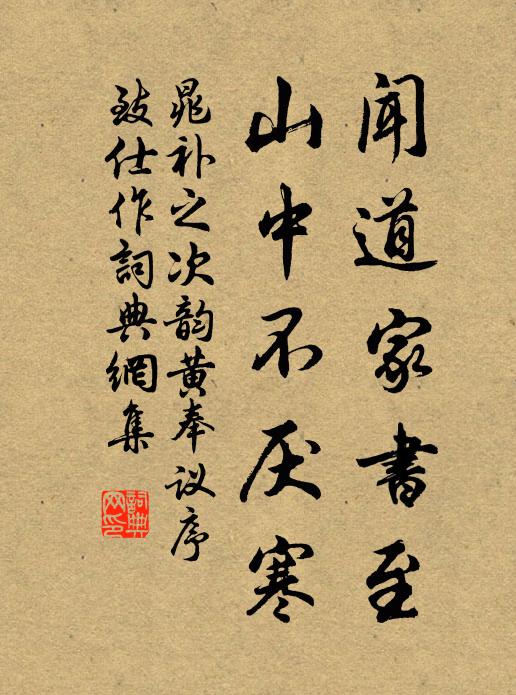 闻道家书至
山中不厌寒
晁补之次韵黄奉议序
致仕作詞典網集
詞典網印